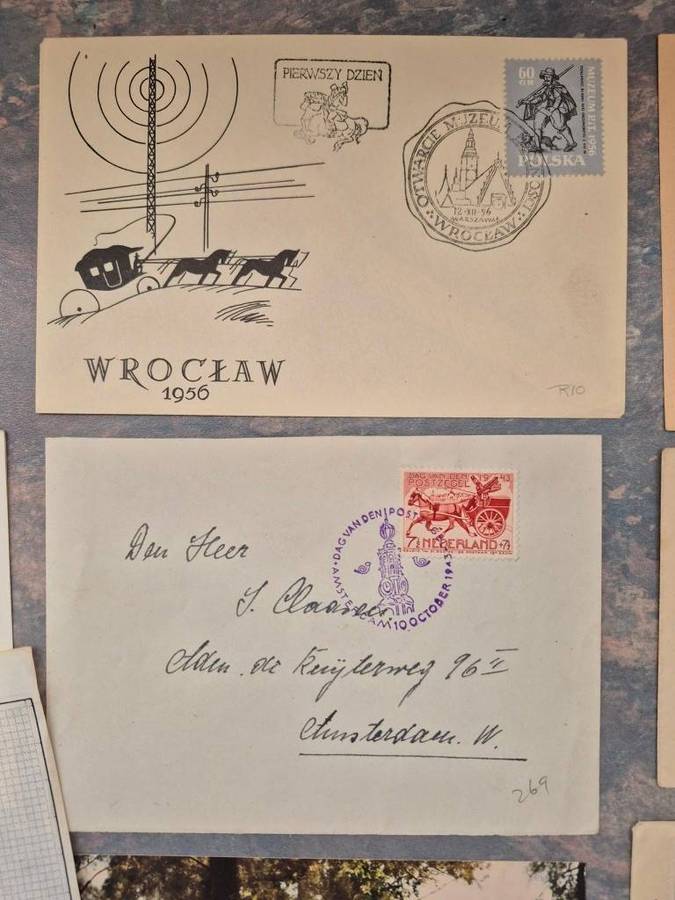 PIERWSZY DZIEŃ
60
GR
MUZEUM P.T. 1956
POLSKA
OTWARCIE MUZEUM POCZTY
12·XII·56
WARSZAWA
WROCŁAW
WROCŁAW
1956
R10
DAG VAN DEN 1943
POSTZEGEL
7½ NEDERLAND +7½
DAG VAN DEN POSTZEGEL
AMSTERDAM 10 OCTOBER 1943
Den Heer
S. Claasen
Adm. de Ruijterweg 96 II
Amsterdam. W.
269